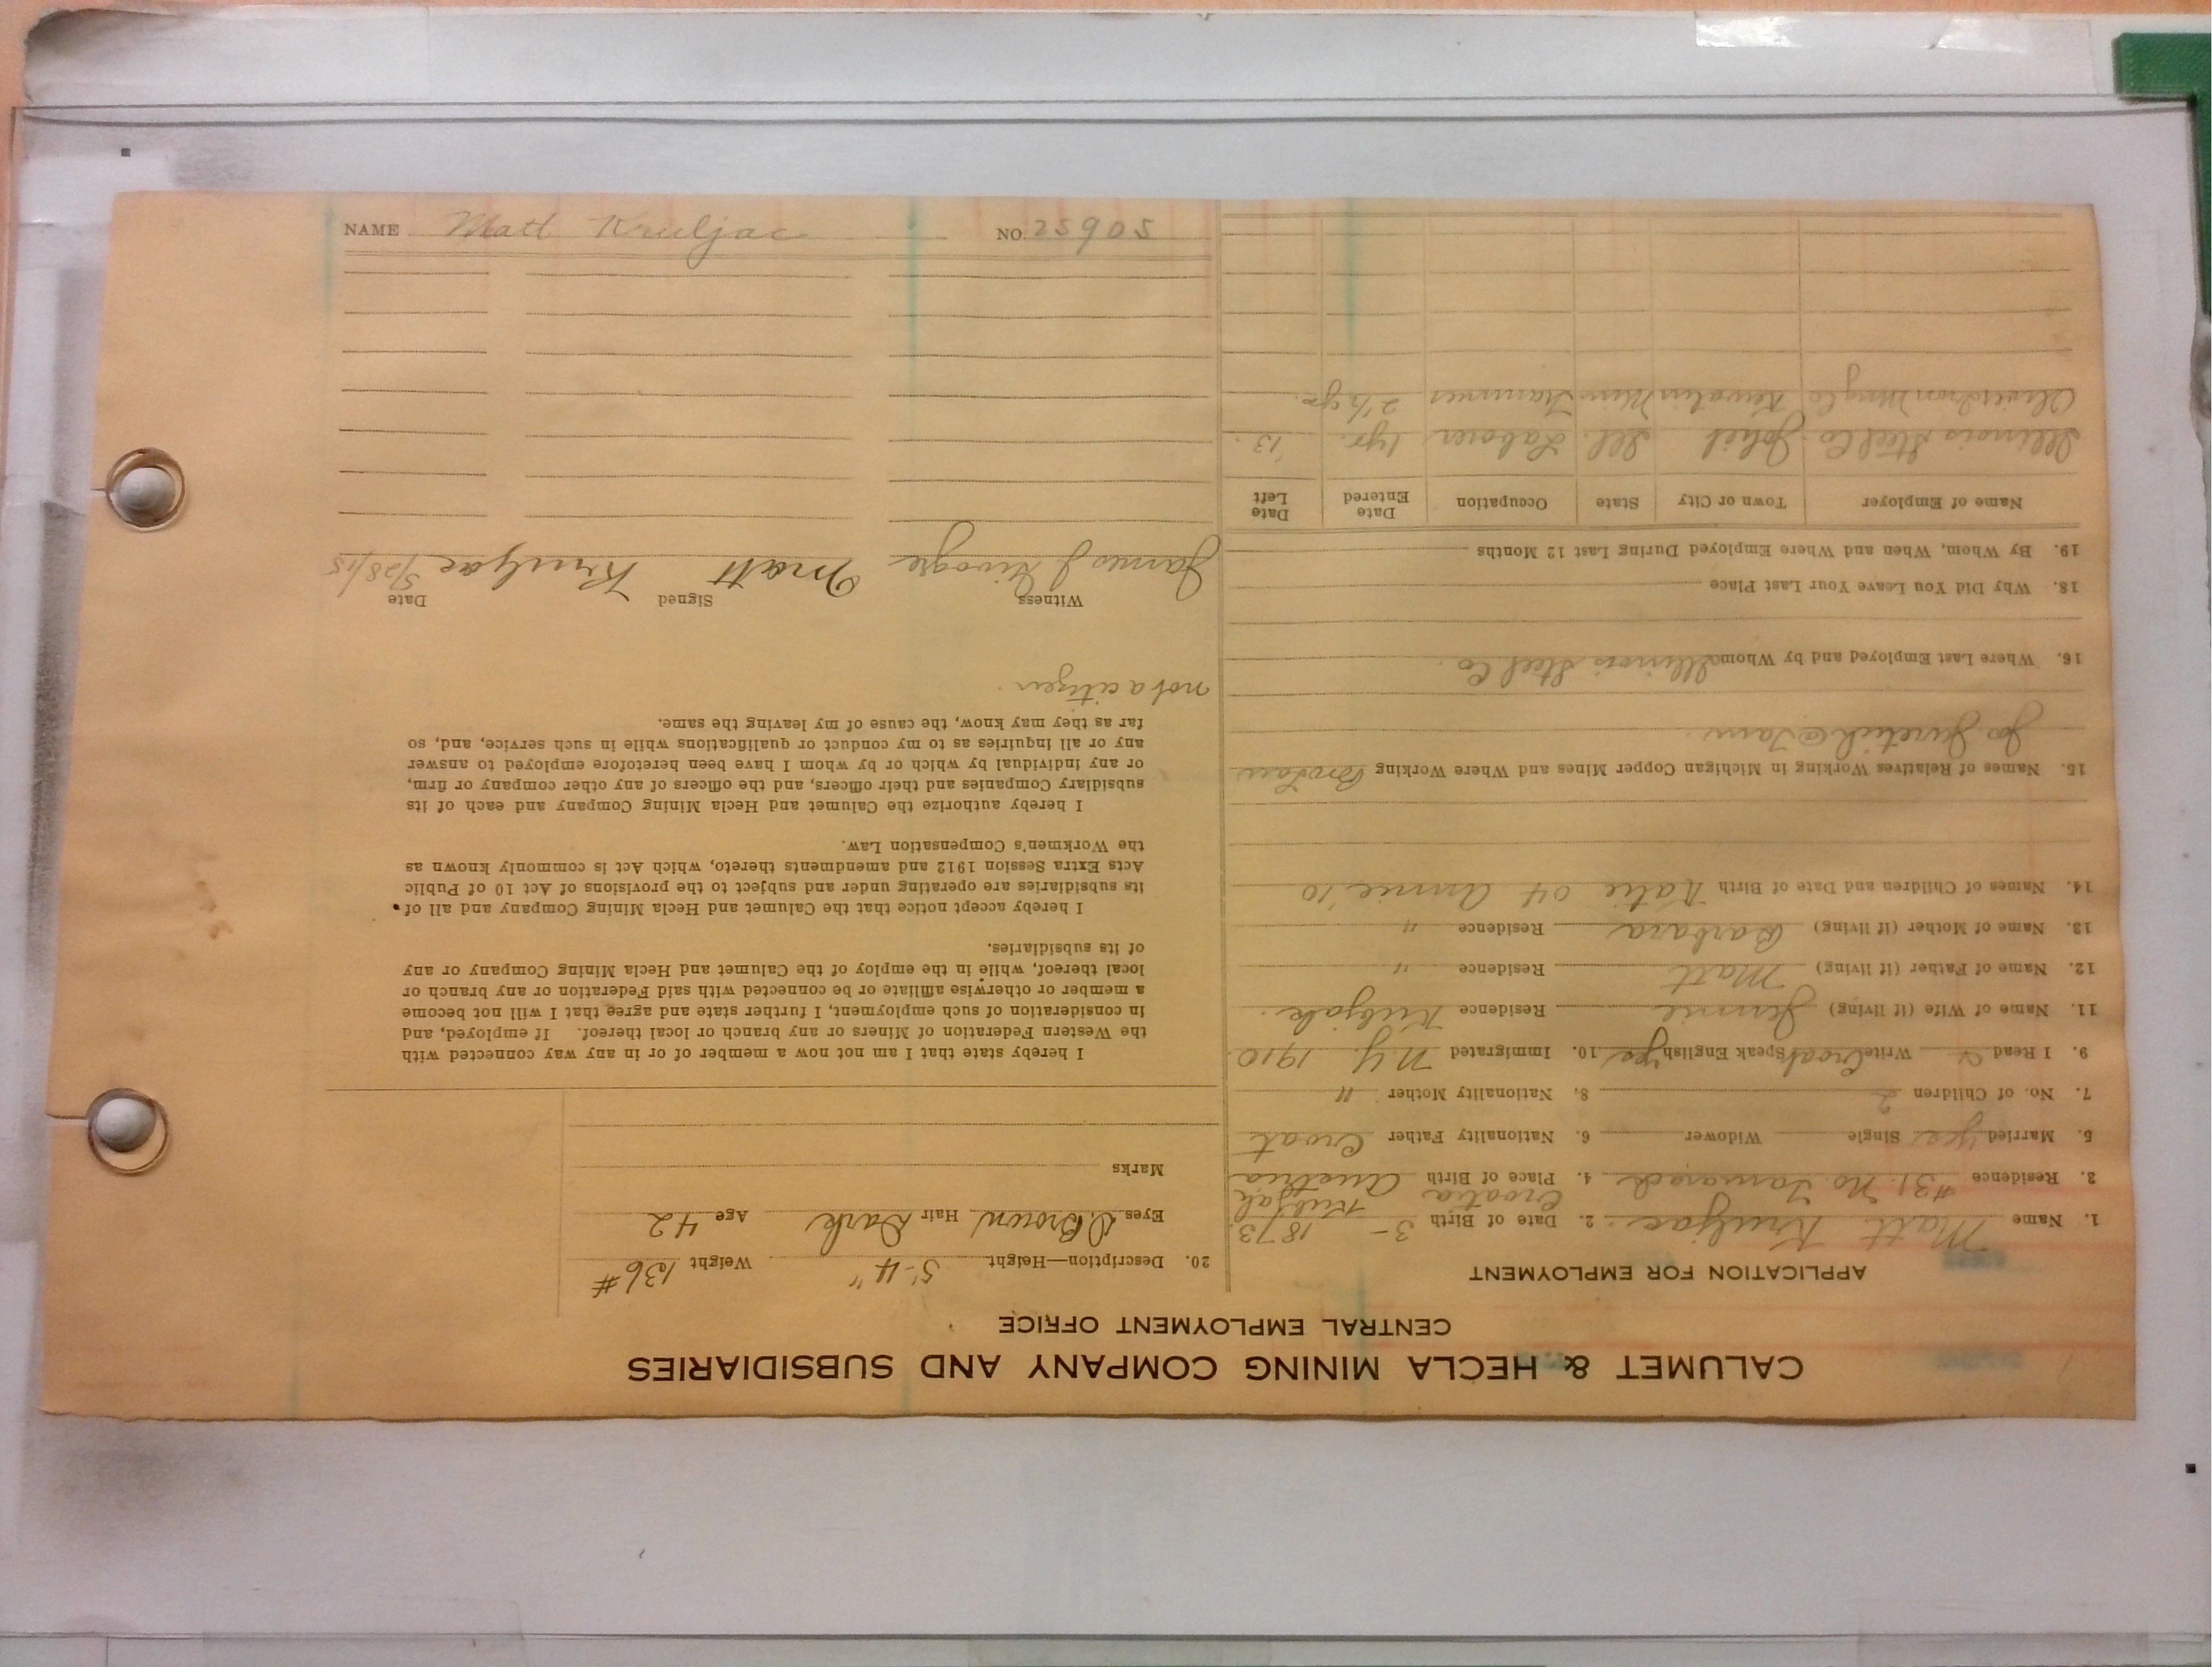 CALUMET & HECLA MINING COMPANY AND SUBSIDIARIES
CENTRAL EMPLOYMENT OFFICE
APPLICATION FOR EMPLOYMENT
1. Name Matt Kruljac 2. Date of Birth 3- 1873
3. Residence #31. No. Tamarack 4. Place of Birth Croatia Austria
5. Married yes Single Widower 6. Nationality Father Croat
7. No. of Children 2 8. Nationality Mother "
9. I Read Write Croat Speak English yes 10. Immigrated N.Y. 1910.
11. Name of Wife (if living) Jennie Residence
12. Name of Father (if living) Matt Residence "
13. Name of Mother (if living) Barbara Residence "
14. Names of Children and Date of Birth Katie 04 Annie '10
15. Names of Relatives Working in Michigan Copper Mines and Where Working Bro Law
Jos. @ Tam.
16. Where Last Employed and by Whom Illinois Steel Co.
18. Why Did You Leave Your Last Place
19. By Whom, When and Where Employed During Last 12 Months
Name of Employer Town or City State Occupation Date Entered Date Left
Illinois Steel Co. Joliet Ill. Laborer 1 yr. '13.
Oliver Iron Mng Co Kewatin Minn Trammer 2 1/2 yr.
20. Description—Height 5'-4" Weight 136#
Eyes D. Brown Hair Dark Age 42
Marks
I hereby state that I am not now a member of or in any way connected with
the Western Federation of Miners or any branch or local thereof. If employed, and
in consideration of such employment, I further state and agree that I will not become
a member or otherwise affiliate or be connected with said Federation or any branch or
local thereof, while in the employ of the Calumet and Hecla Mining Company or any
of its subsidiaries.
I hereby accept notice that the Calumet and Hecla Mining Company and all of
its subsidiaries are operating under and subject to the provisions of Act 10 of Public
Acts Extra Session 1912 and amendments thereto, which Act is commonly known as
the Workmen's Compensation Law.
I hereby authorize the Calumet and Hecla Mining Company and each of its
subsidiary Companies and their officers, and the officers of any other company or firm,
or any individual by which or by whom I have been heretofore employed to answer
any or all inquiries as to my conduct or qualifications while in such service, and, so
far as they may know, the cause of my leaving the same.
not a citizen.
Witness Signed Date
James J. Matt Kruljac 5/28/15
NAME Matt Kruljac NO. 25905